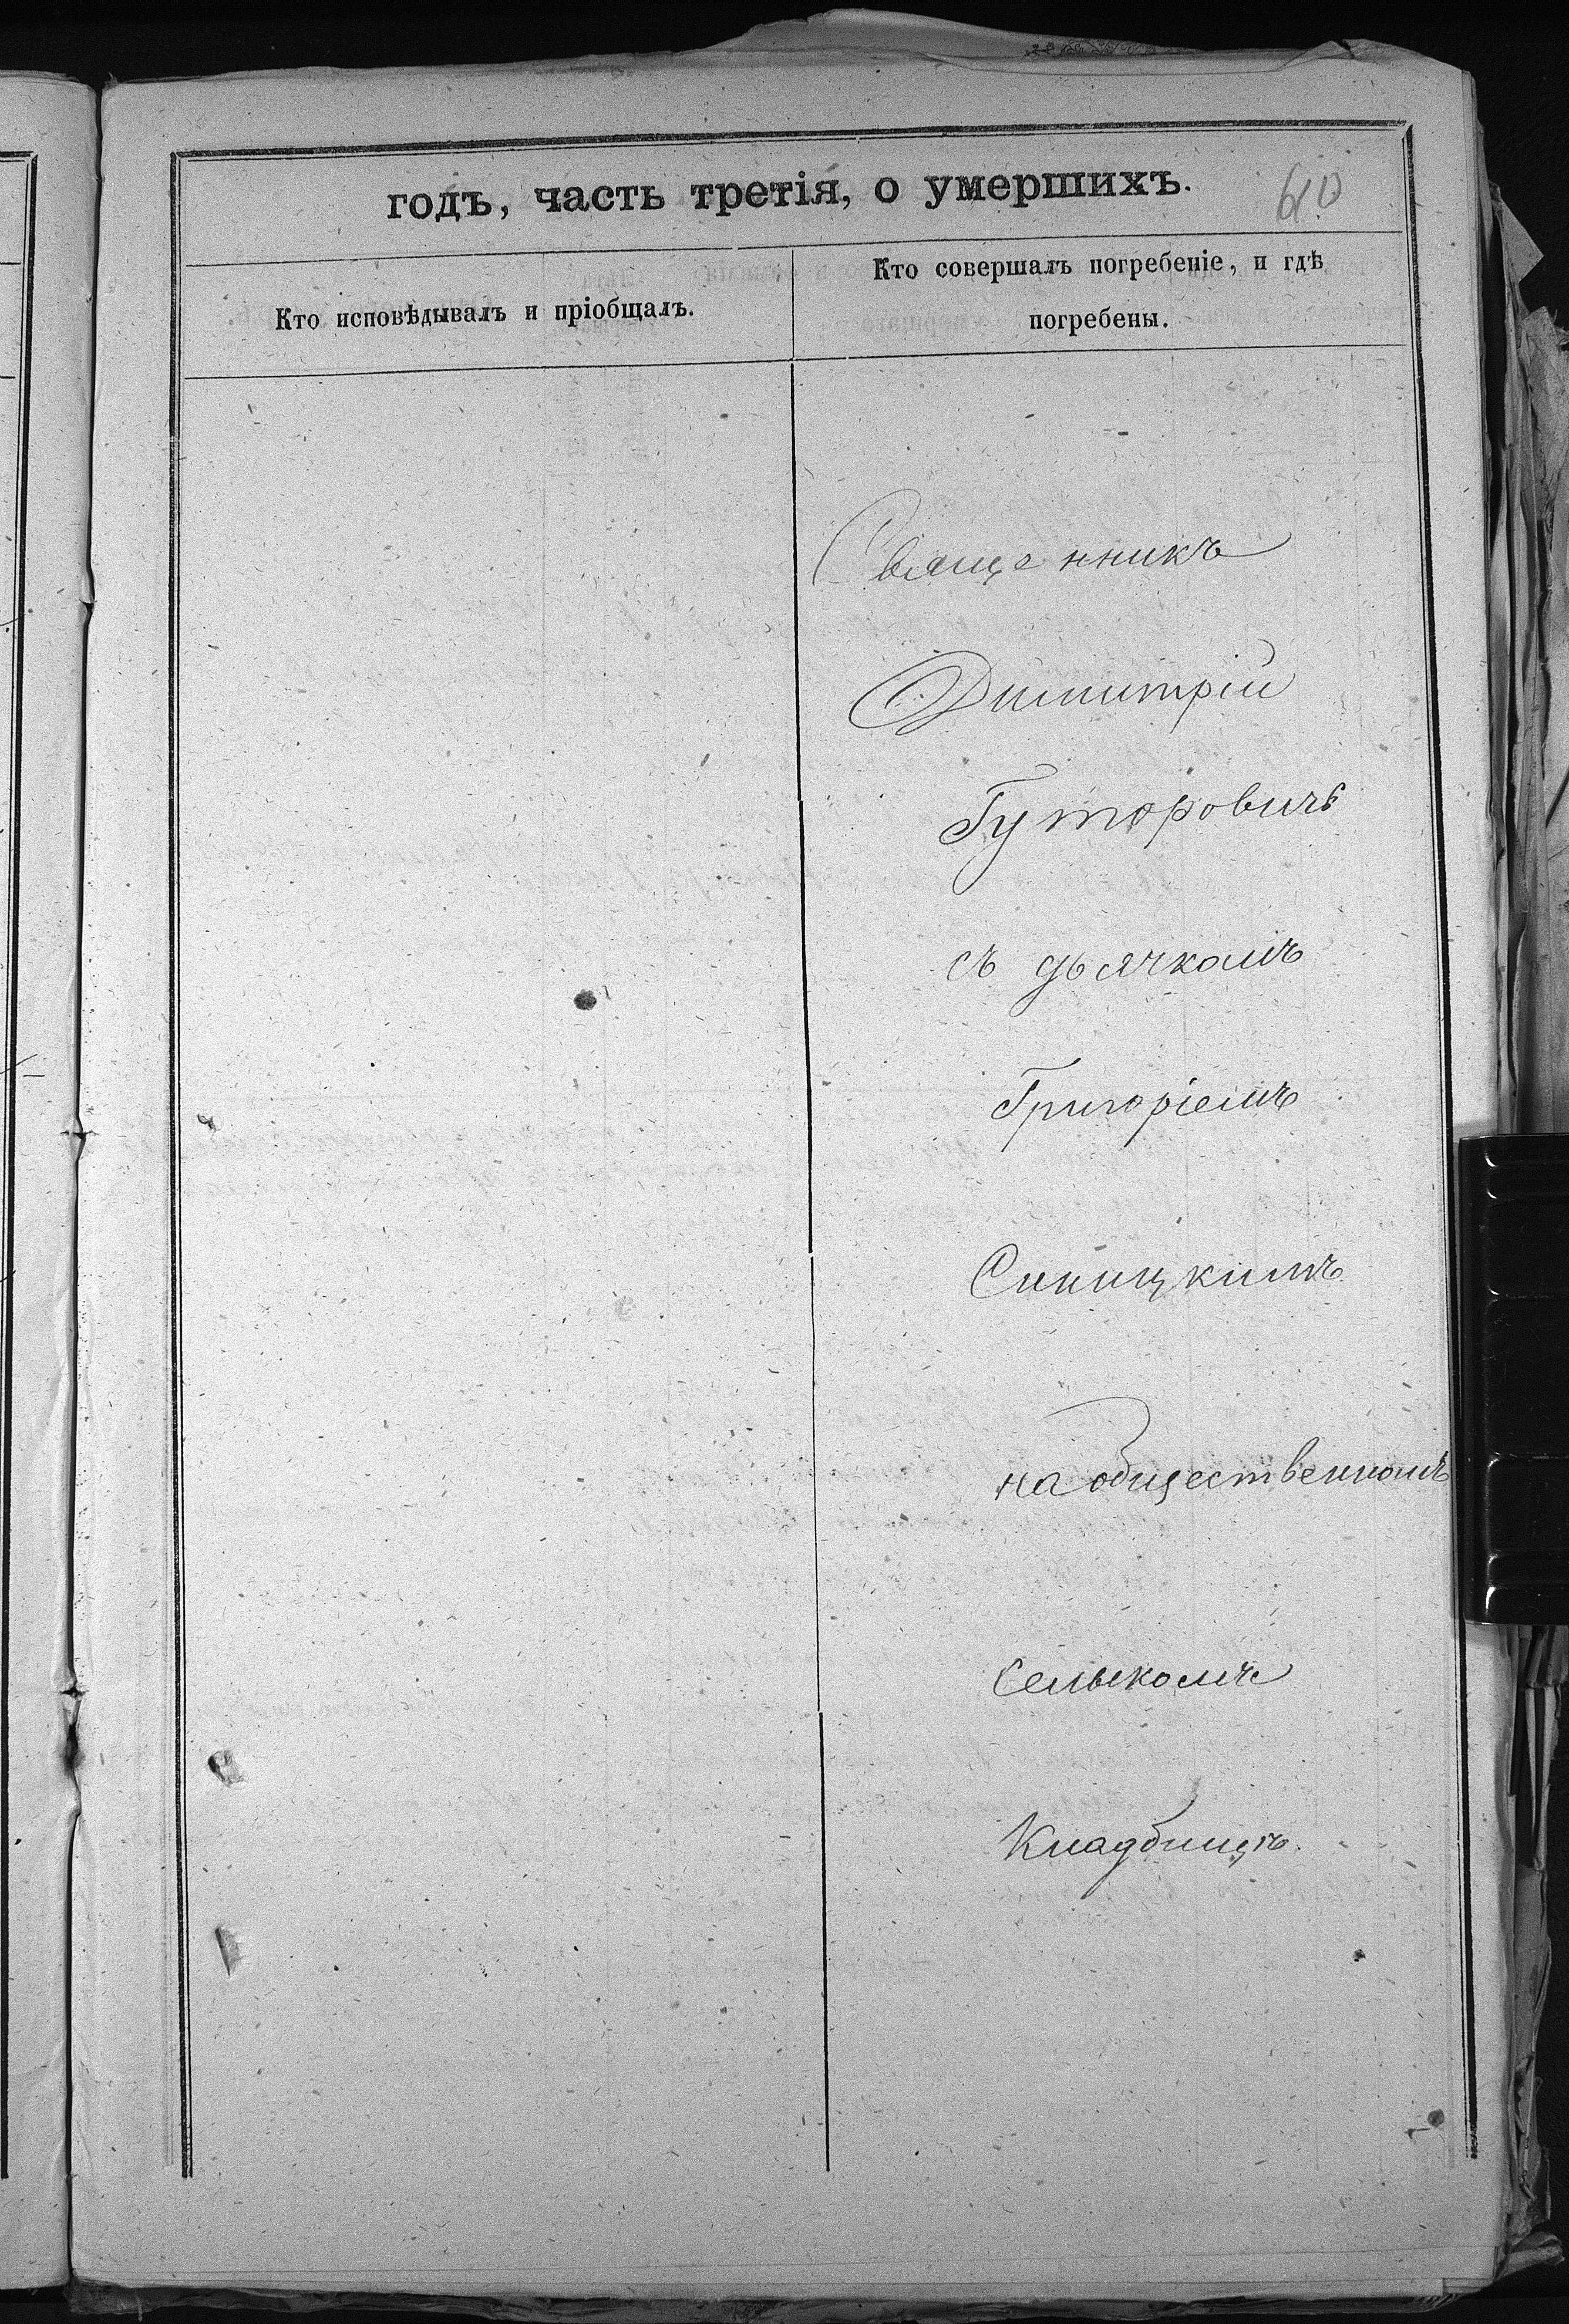 годъ, часть третія, о умершихъ.
610
Кто исповѣдывалъ и пріобщалъ.
Кто совершалъ погребеніе, и гдѣ
погребены.
Священникъ
Димитрій
Гуторовичъ
съ дьячкомъ
Григоріемъ
Синицкимъ
на общественномъ
Сельскомъ
Кладбищѣ.